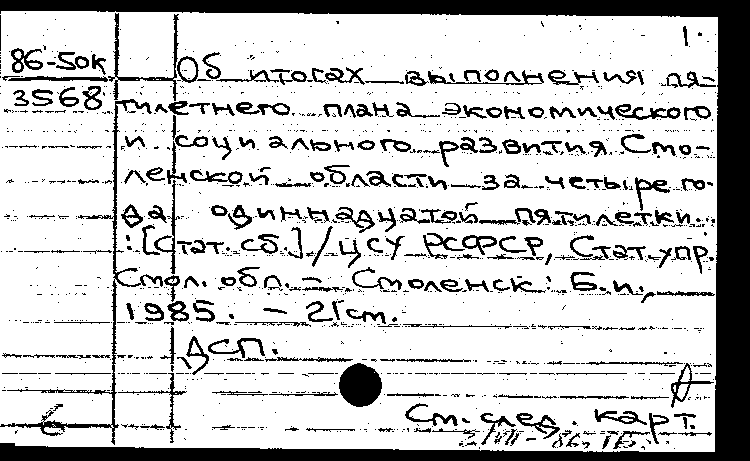 1.
86-50к Об итогах выполнения пя-
3568 тилетнего плана экономического
и социального развития Смо-
ленской области за четыре го-
да одиннадцатой пятилетки..
: [Стат. сб.] / ЦСУ РСФСР, Стат. упр.
Смол. обл. – Смоленск: Б.и.,
1985. – 21 см.
ДСП.
6 См. след. карт.